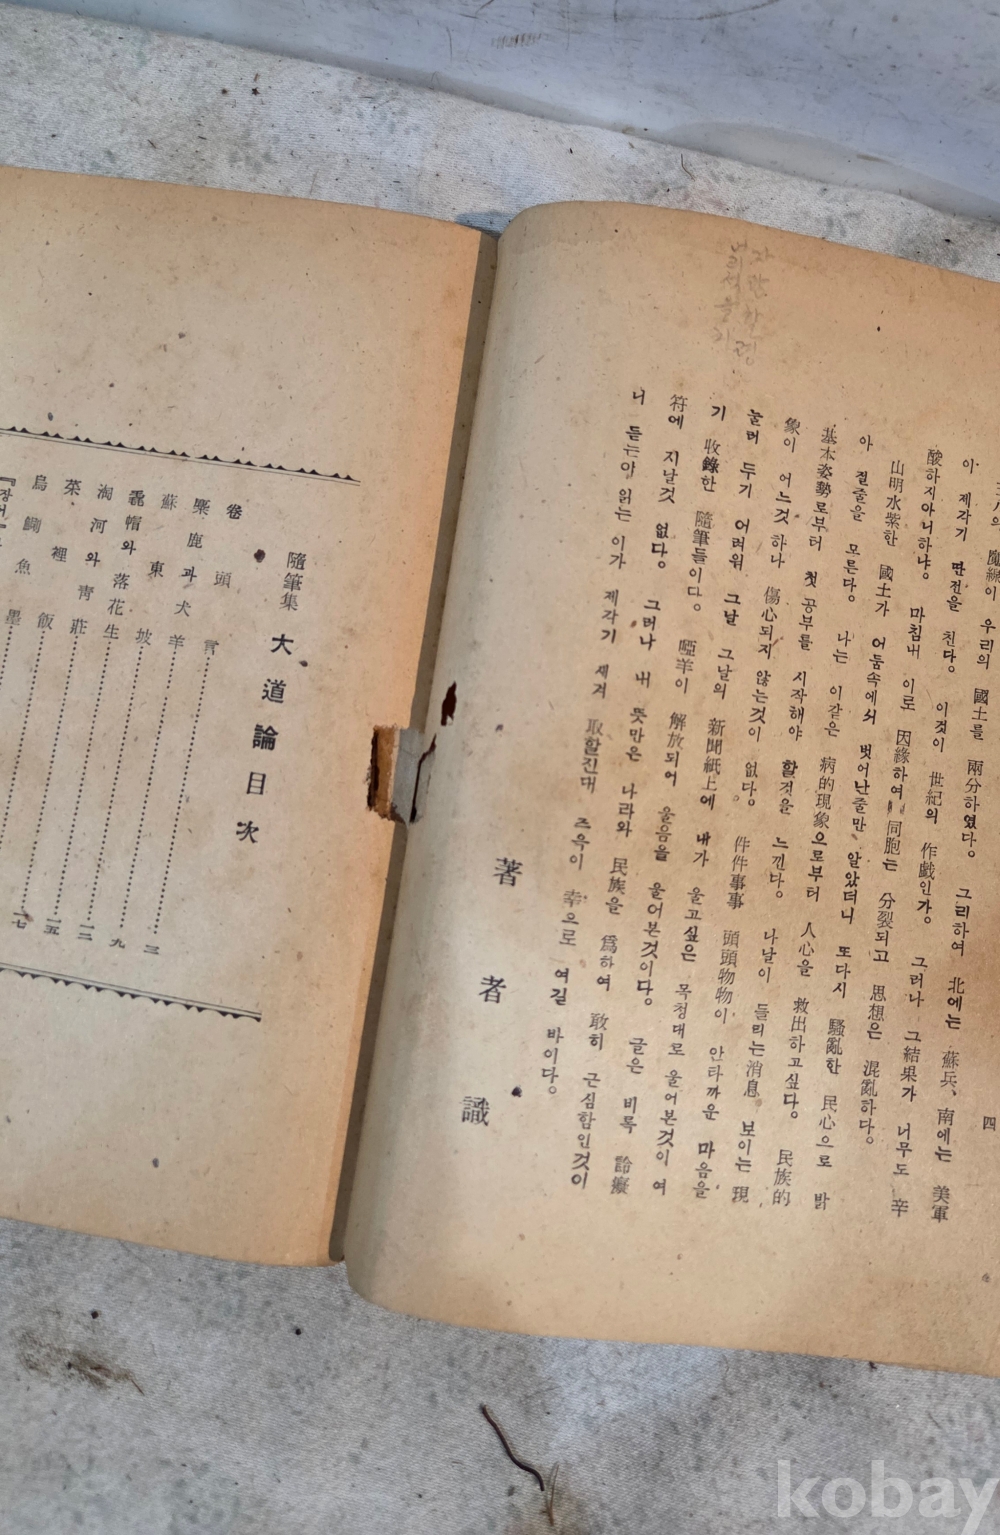 四
의 魔線이 우리의 國土를 兩分하였다。 그리하여 北에는 蘇兵、南에는 美軍
이 제각기 딴전을 친다。 이것이 世紀의 作戱인가。 그러나 그 結果가 너무도 辛
酸하지아니하냐。 마침내 이로 因緣하여 同胞는 分裂되고 思想은 混亂하다。
山明水紫한 國土가 어둠속에서 벗어난줄만 알았더니 또다시 騷亂한 民心으로 밝
아 졀줄을 모른다。 나는 이같은 病的現象으로부터 人心을 救出하고싶다。 民族的
基本姿勢로부터 첫 공부를 시작해야 할것을 느낀다。 나날이 들리는消息。 보이는 現
象이 어느것 하나 傷心되지 않는것이 없다。 件件事事 頭頭物物이 안타까운 마음을
눌러 두기 어려워 그날 그날의 新聞紙上에 내가 울고싶은 목청대로 울어본것이 여
기 收錄한 隨筆들이다。 啞羊이 解放되어 울음을 울어본것이다。 글은 비록 詅癡
符에 지날것 없다。 그러나 내 뜻만은 나라와 民族을 爲하여 敢히 근심함인것이
니 듣는이 읽는 이가 제각기 새겨 取할진대 즈윽이 幸으로 여길 바이다。
著者識
隨筆集 大道論目次
卷頭言 三
麋鹿과 犬羊 九
蘇東坡 一二
氈帽와 落花生 一五
洶河와 靑莊 一七
菜裡飯
烏鰂魚墨
kobay